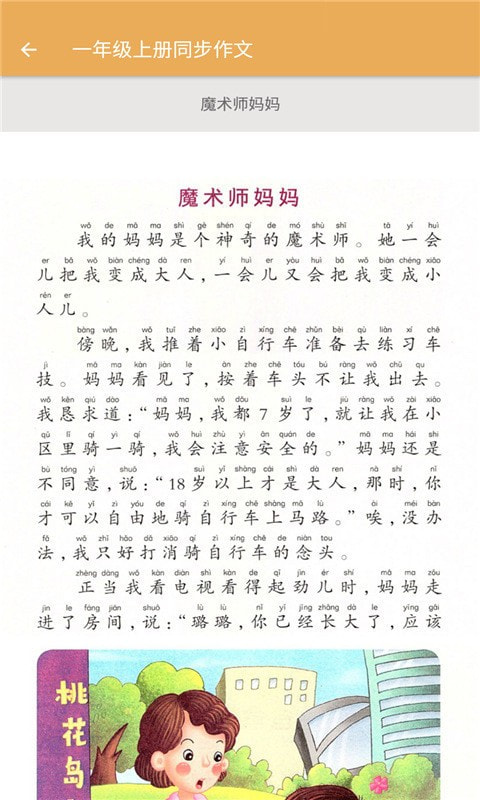 一年级上册同步作文
魔术师妈妈
魔术师妈妈
wǒ de mā ma shì gè shén qí de mó shù shī tā yí huì
我的妈妈是个神奇的魔术师。她一会
er bǎ wǒ biàn chéng dà ren yí huì er yòu huì bǎ wǒ biàn chéng xiǎo
儿把我变成大人，一会儿又会把我变成小
rén er
人儿。
bàng wǎn wǒ tuī zhe xiǎo zì xíng chē zhǔn bèi qù liàn xí chē
傍晚，我推着小自行车准备去练习车
jì mā ma kàn jiàn le àn zhe chē tóu bú ràng wǒ chū qu
技。妈妈看见了，按着车头不让我出去。
wǒ kěn qiú dào mā ma wǒ dōu suì le jiù ràng wǒ zài xiǎo
我恳求道：“妈妈，我都7岁了，就让我在小
qū lǐ qí yi qí wǒ huì zhù yì ān quán de mā ma hái shi
区里骑一骑，我会注意安全的。”妈妈还是
bù tóng yì shuō suì yǐ shàng cái shì dà ren nà shí nǐ
不同意，说：“18岁以上才是大人，那时，你
cái kě yǐ zì yóu de qí zì xíng chē shàng mǎ lù ài méi bàn
才可以自由地骑自行车上马路。”唉，没办
fǎ wǒ zhǐ hǎo dǎ xiāo qí zì xíng chē de niàn tou
法，我只好打消骑自行车的念头。
zhèng dāng wǒ kàn diàn shì kàn de qǐ jìn ér shí mā ma zǒu
正当我看电视看得起劲儿时，妈妈走
jìn le fáng jiān shuō lù lù nǐ yǐ jīng zhǎng dà le yīng gāi
进了房间，说：“璐璐，你已经长大了，应该
桃花岛